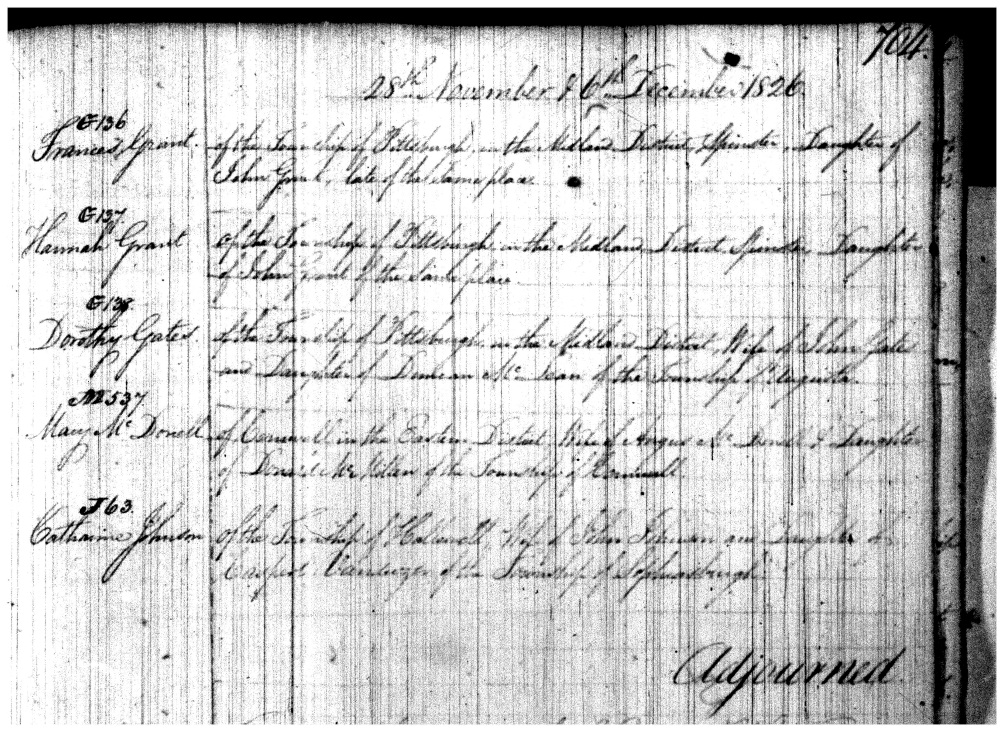 704.
28th November & 6th December 1826.
G136
Frances Grant. of the Township of Pittsburgh, in the Midland District, Spinster, Daughter of
John Grant, late of the same place.
G137.
Hannah Grant of the Township of Pittsburgh in the Midland District, Spinster, Daughter
of John Grant of the same place.
G138.
Dorothy Gates. of the Township of Pittsburgh in the Midland District, Wife of John Gates
and Daughter of Duncan Mc Lean of the Township of Augusta.
M537
Mary Mc Donell of Cornwall in the Eastern District Wife of Angus Mc Donell & Daughter
of Donald Mc Millan of the Township of Cornwall
J63.
Catharine Johnson of the Township of Hallowell, Wife of John Johnson and Daughter of
Vanduzen of the Township of Sophiasburgh
Adjourned.